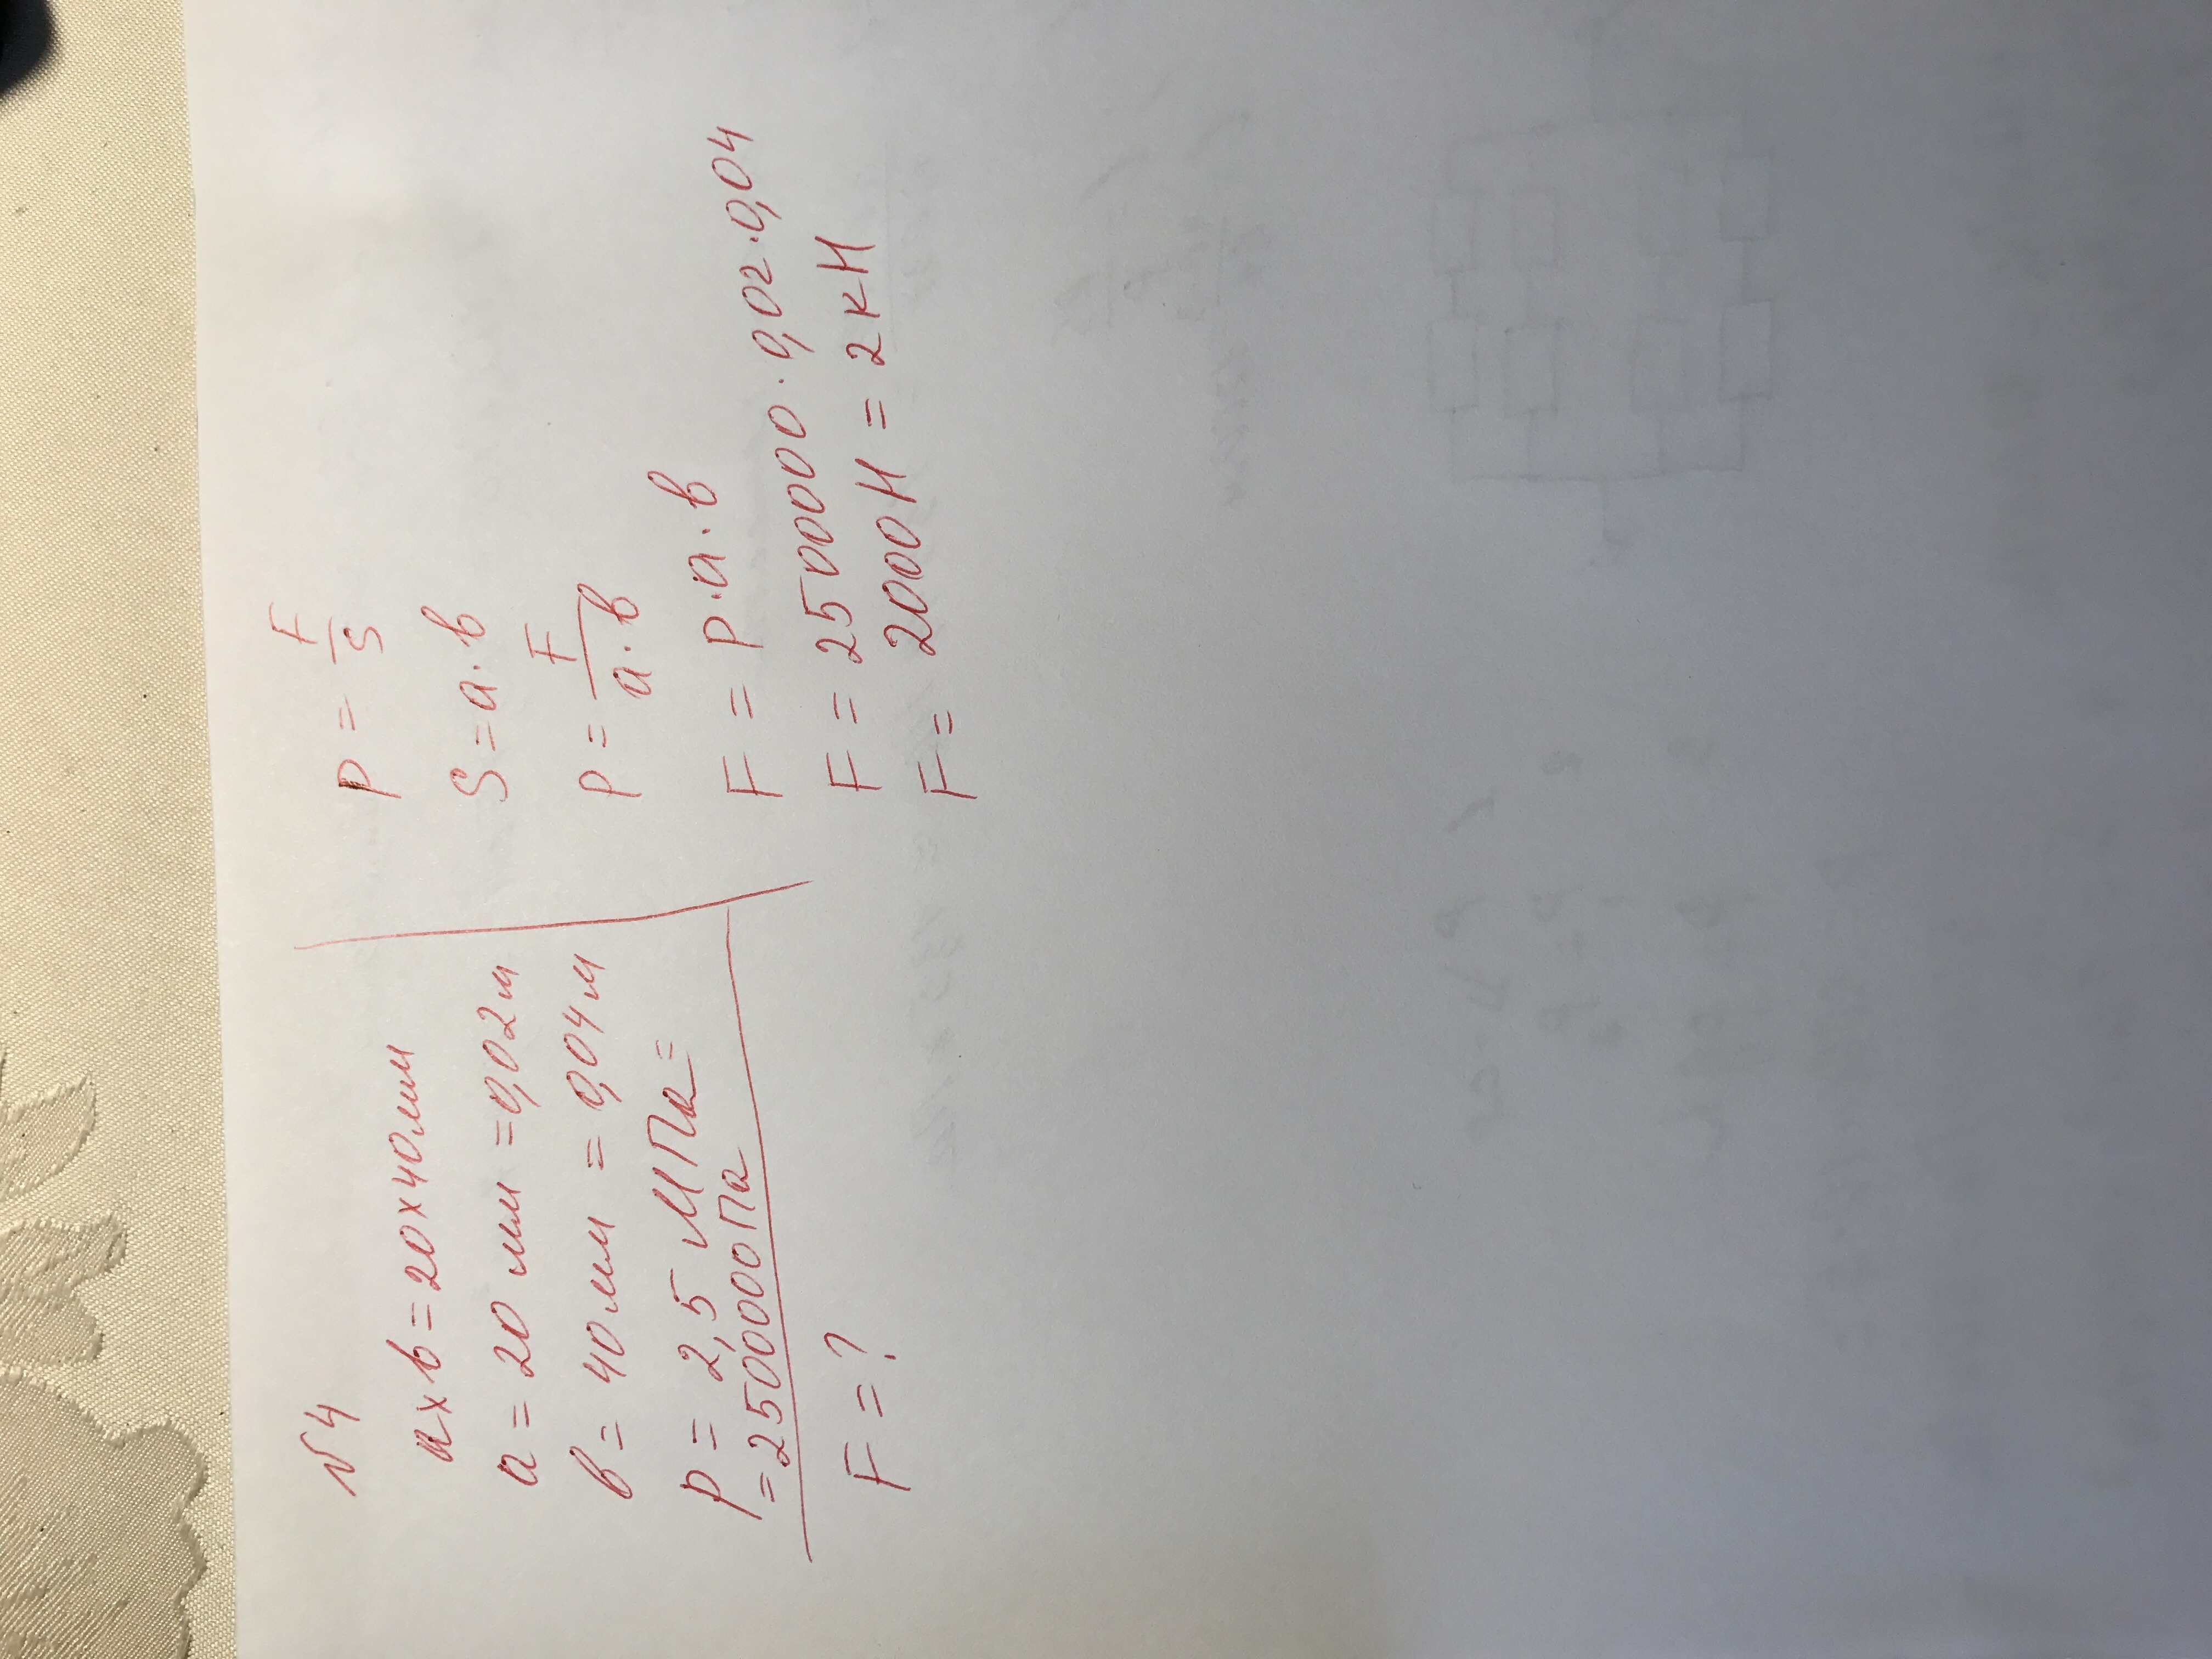 №4
a×b = 20×40мм
a = 20 мм = 0,02м
b = 40мм = 0,04м
P = 2,5 МПа =
= 2500000Па
F = ?
P = F/S
S = a·b
P = F/a·b
F = P·a·b
F = 2500000·0,02·0,04
F = 2000Н = 2кН